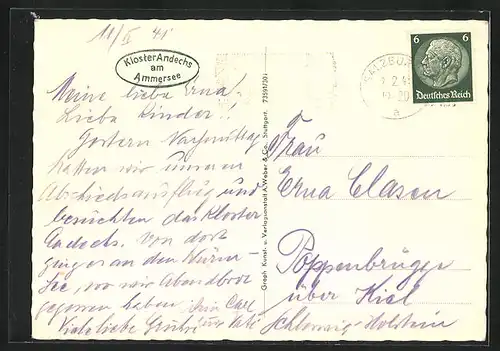 11/II 41
Kloster Andechs
am
Ammersee
Meine liebe Erna
Liebe Kinder!!
Gestern Nachmittag
hatten wir unseren
Abschiedsausflug und
besuchten das Kloster
Andechs. Von dort
ging es an den Würm-
See, wo wir Abendbrot
gegessen haben
Viele liebe Grüße
Dein Carl
Graph. Kunst- u. Verlagsanstalt A. Weber & Co., Stuttgart.
SALZBU
a
6 6
Deutsches Reich
Frau
Erna Clasen
Poppenbrügge
über Kiel
Schleswig-Holstein